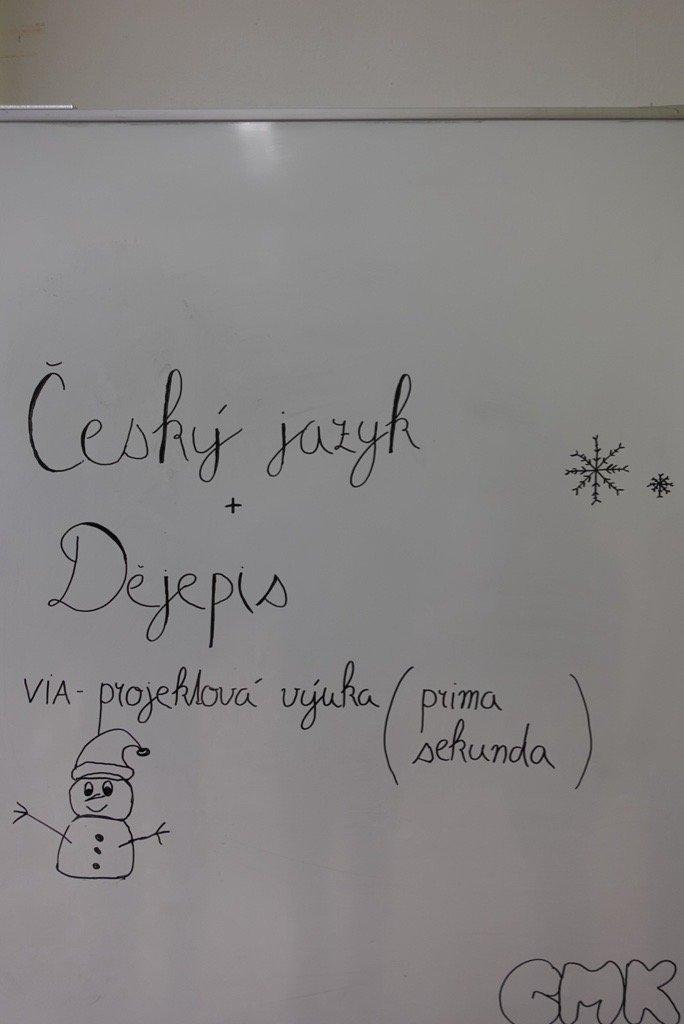 Český jazyk
+
Dějepis
VIA - projektová výuka (prima
sekunda)
CMK